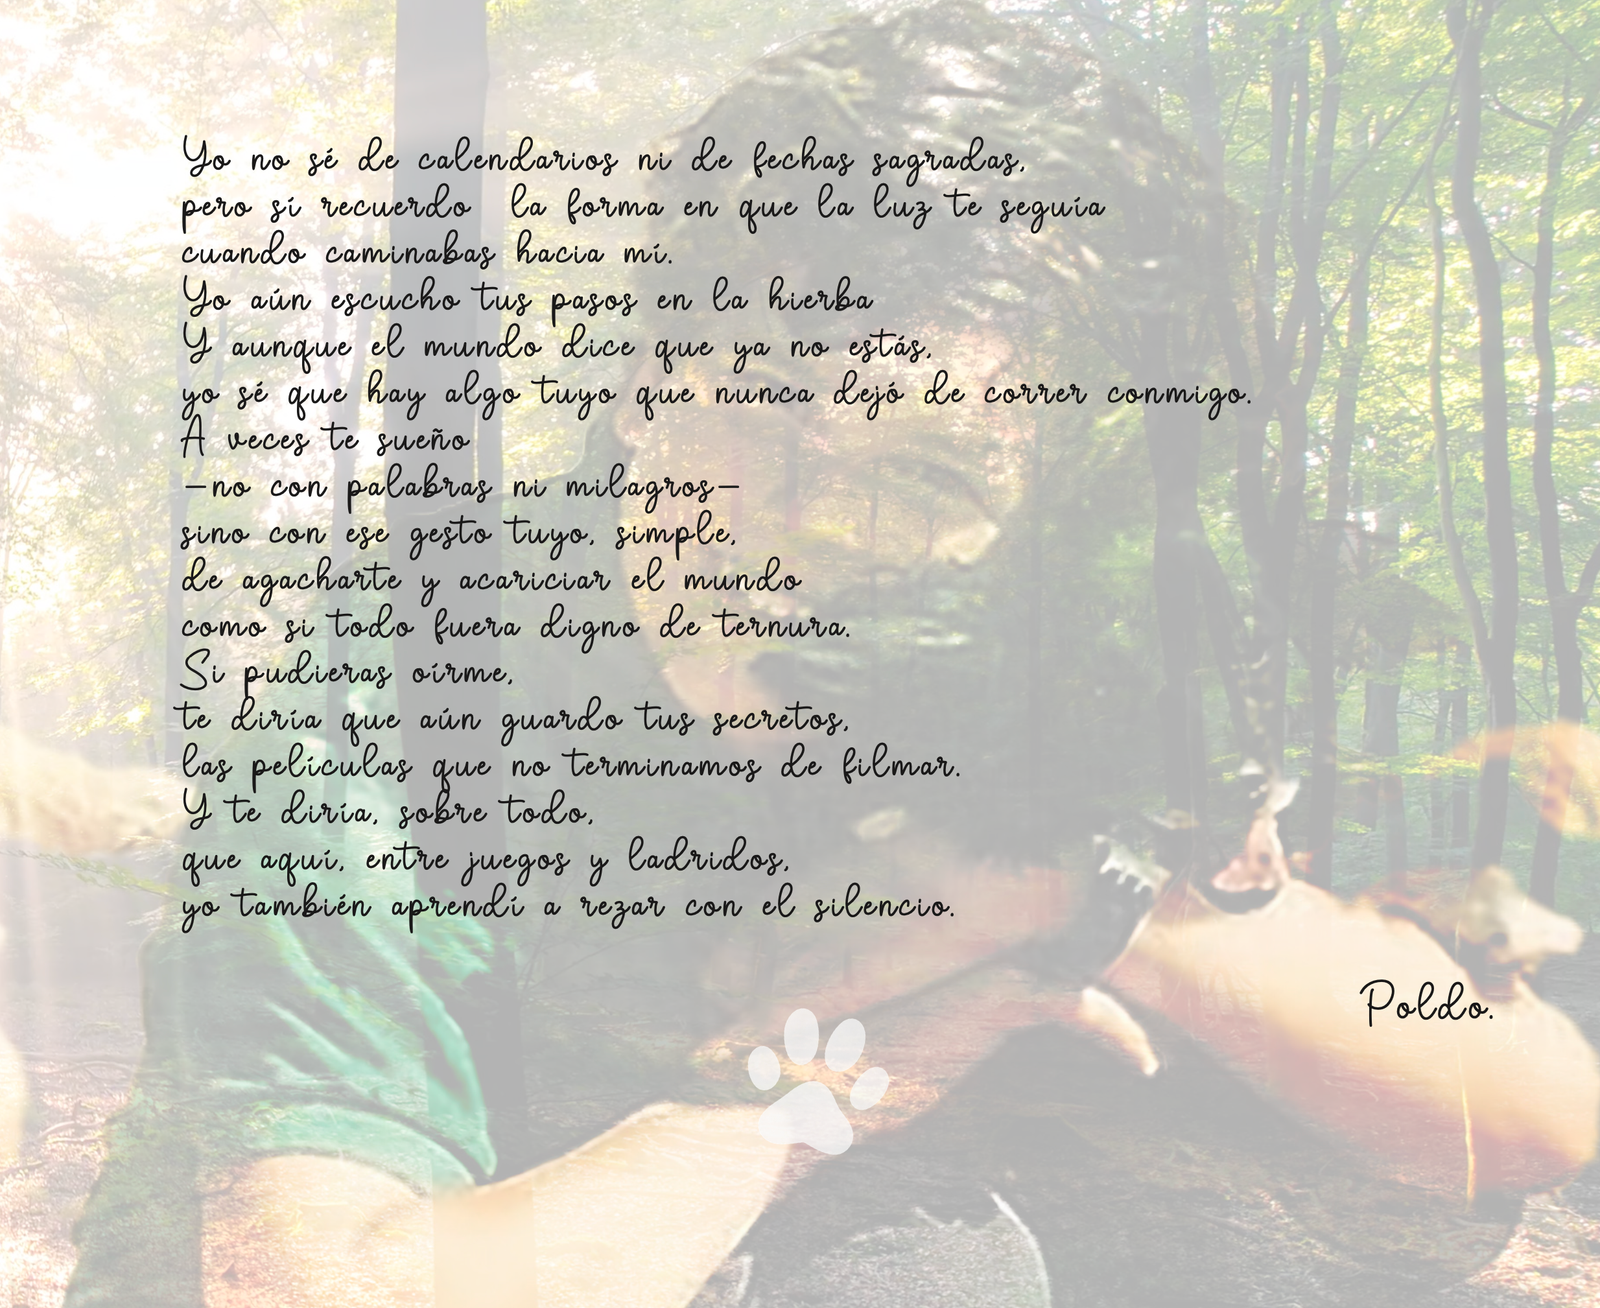 Yo no sé de calendarios ni de fechas sagradas,
pero sí recuerdo la forma en que la luz te seguía
cuando caminabas hacia mí.
Yo aún escucho tus pasos en la hierba
Y aunque el mundo dice que ya no estás,
yo sé que hay algo tuyo que nunca dejó de correr conmigo.
A veces te sueño
—no con palabras ni milagros—
sino con ese gesto tuyo, simple,
de agacharte y acariciar el mundo
como si todo fuera digno de ternura.
Si pudieras oírme,
te diría que aún guardo tus secretos,
las películas que no terminamos de filmar.
Y te diría, sobre todo,
que aquí, entre juegos y ladridos,
yo también aprendí a rezar con el silencio.
Poldo.